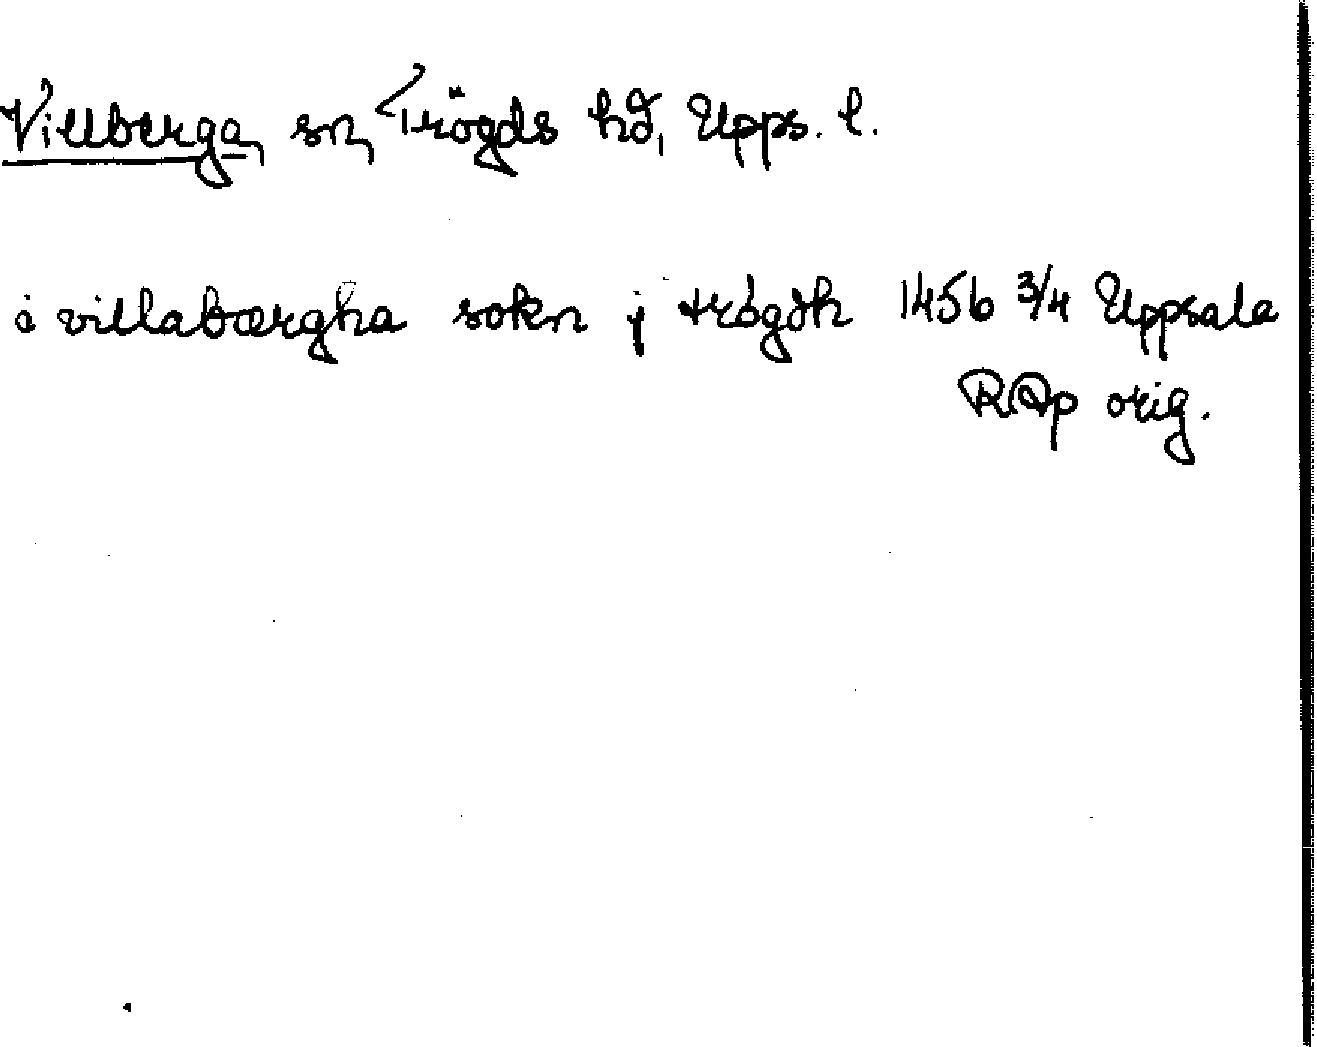 Villberga, sn, Trögds hd, Upps. l.
i villabærgha sokn j trögdh 1456 3/4 Uppsala
RAp orig.